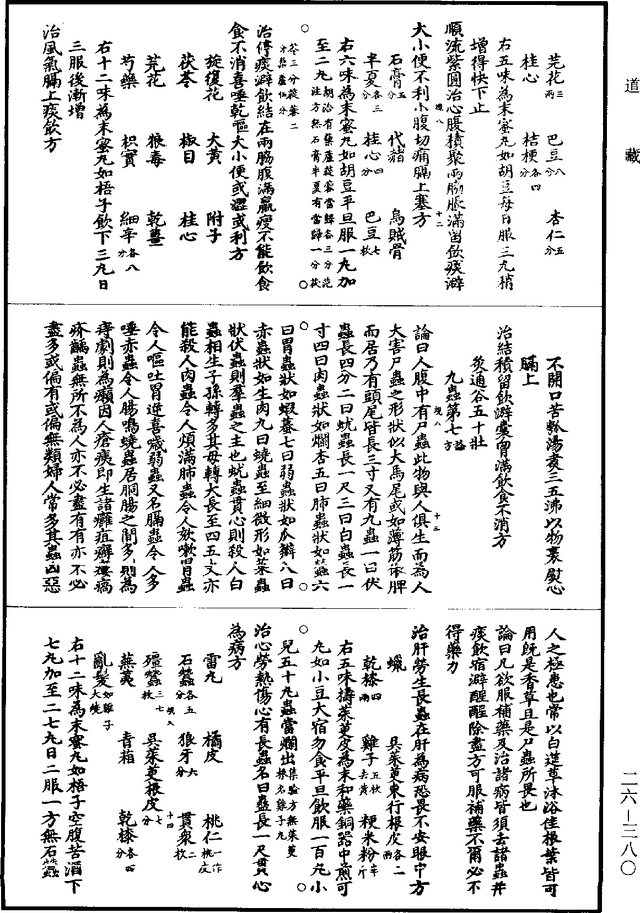 道藏
芫花三兩　巴豆八分　杏仁五分
桂心　桔梗各四分
右五味為末蜜丸如胡豆每日服三丸稍
增得快下止
順流紫圓治心腹積聚兩脇脹滿留飲痰澼
大小便不利小腹切痛膈上塞方
石膏五分　代赭　烏賊骨
半夏各三分　桂心四分　巴豆七枚
右六味為末蜜丸如胡豆平旦服一丸加
至二丸
治停痰澼飲結在兩脇腹滿羸瘦不能飲食
食不消喜唾乾嘔大小便或澀或利方
旋復花　大黃　附子
茯苓　椒目　桂心
芫花　狼毒　乾薑
芍藥　枳實　細辛各八分
右十二味為末蜜丸如梧子飲下三丸日
三服後漸增
治風氣膈上痰飲方
不開口苦瓠湯煮三五沸以物裹熨心
膈上
治結積留飲澼囊胃滿飲食不消方
灸通谷五十壯
九蟲第七
論曰人腹中有尸蟲此物與人俱生而為人
大害尸蟲之形狀似大馬尾或如薄筋依脾
而居乃有頭尾皆長三寸又有九蟲一曰伏
蟲長四分二曰蚘蟲長一尺三曰白蟲長一
寸四曰肉蟲狀如爛杏五曰肺蟲狀如蠶六
曰胃蟲狀如蝦蟇七曰弱蟲狀如瓜瓣八曰
赤蟲狀如生肉九曰蟯蟲至細微形如菜蟲
狀伏蟲則羣蟲之主也蚘蟲貫心則殺人白
蟲相生子孫轉多其母轉大長至四五丈亦
能殺人肉蟲令人煩滿肺蟲令人欬嗽胃蟲
令人嘔吐胃逆喜噦弱蟲又名膈蟲令人多
唾赤蟲令人腸鳴蟯蟲居胴腸之間多則為
痔劇則為癩因人瘡痍即生諸癰疽癬瘻瘑
疥齲蟲無所不為人亦不必盡有有亦不必
盡多或偏有或偏無類婦人常多其蟲凶惡
人之極患也常以白筵草沐浴佳根葉皆可
用既是香草且是尸蟲所畏也
論曰凡欲服補藥及治諸病皆須去諸蟲并
痰飲宿澼醒醒除盡方可服補藥不爾必不
得藥力
治肝勞生長蟲在肝為病恐畏不安眼中方
蠟　吳茱萸東行根皮各二兩
乾漆四兩　雞子五枚去黃　粳米粉半斤
右五味擣茱萸皮為末和藥銅器中煎可
丸如小豆大宿勿食平旦飲服一百丸小
兒五十丸蟲當爛出
治心勞熱傷心有長蟲名曰蠱長一尺貫心
為病方
雷丸　橘皮　桃仁
石蠶各五分　狼牙六分　貫衆二枚
殭蠶三七枚　吳茱萸根皮十分
蕪荑　青葙　乾漆各四分
亂髮如雞子大燒
右十二味為末蜜丸如梧子空腹苦酒下
七丸加至二七丸日二服一方無石蠶
二六—三八〇